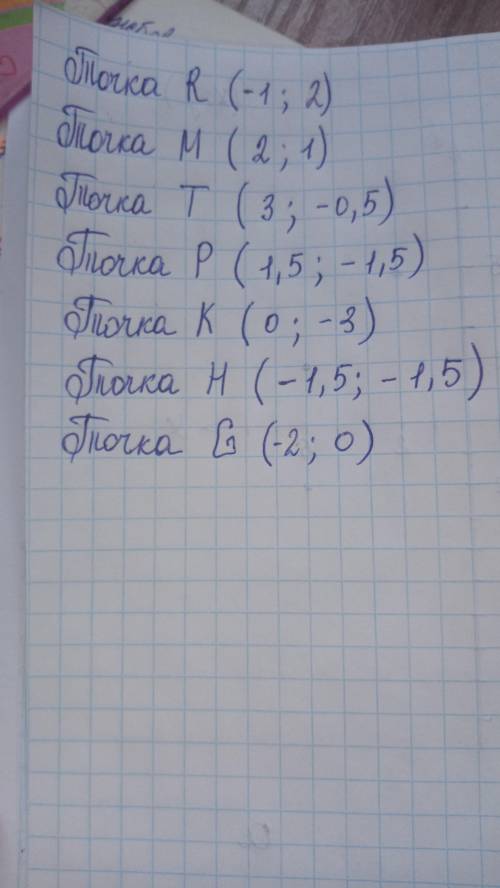 Точка R (-1; 2)
Точка M (2; 1)
Точка T (3; -0,5)
Точка P (1,5; -1,5)
Точка K (0; -3)
Точка H (-1,5; -1,5)
Точка G (-2; 0)